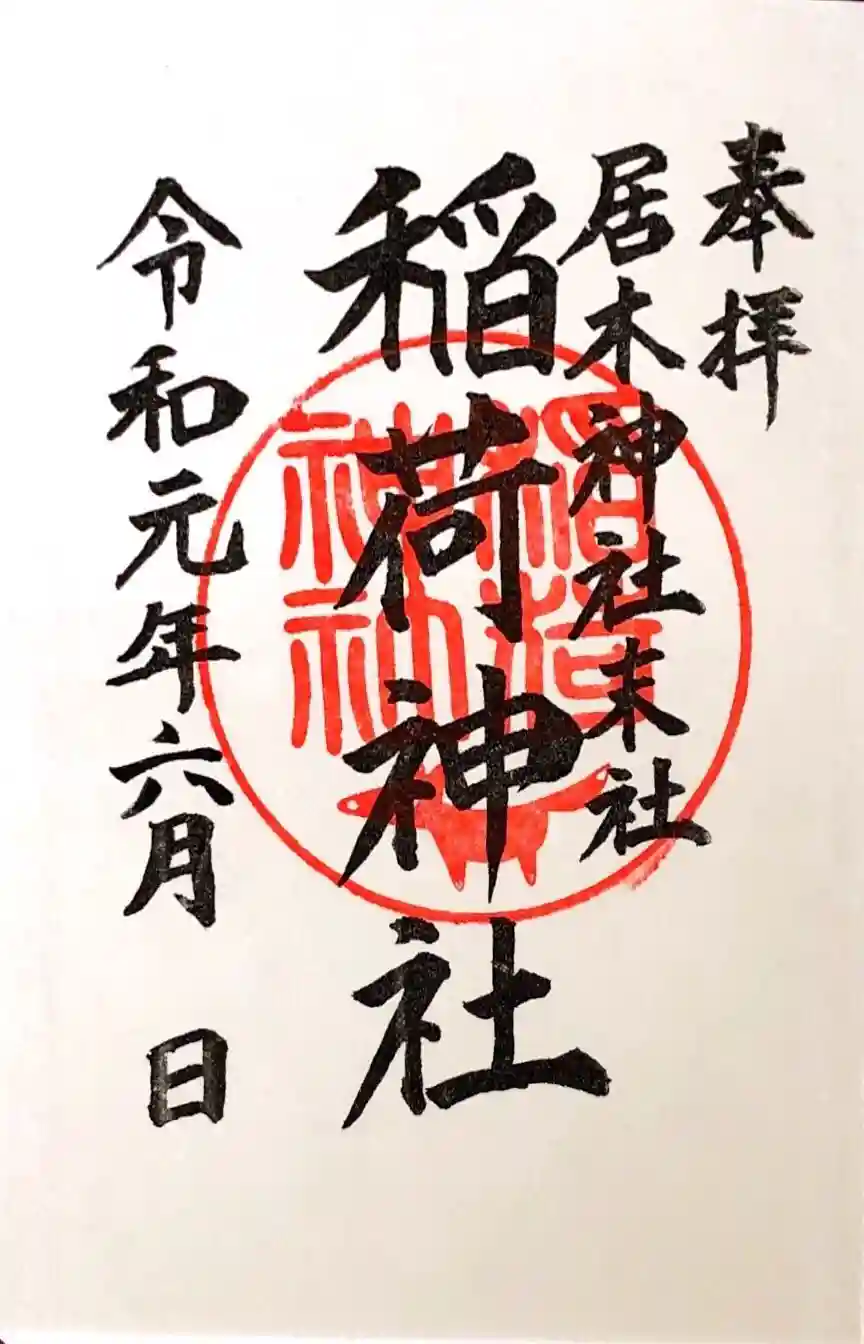 奉拝
居木神社末社
稲荷神社
令和元年六月　日
稲荷
神社